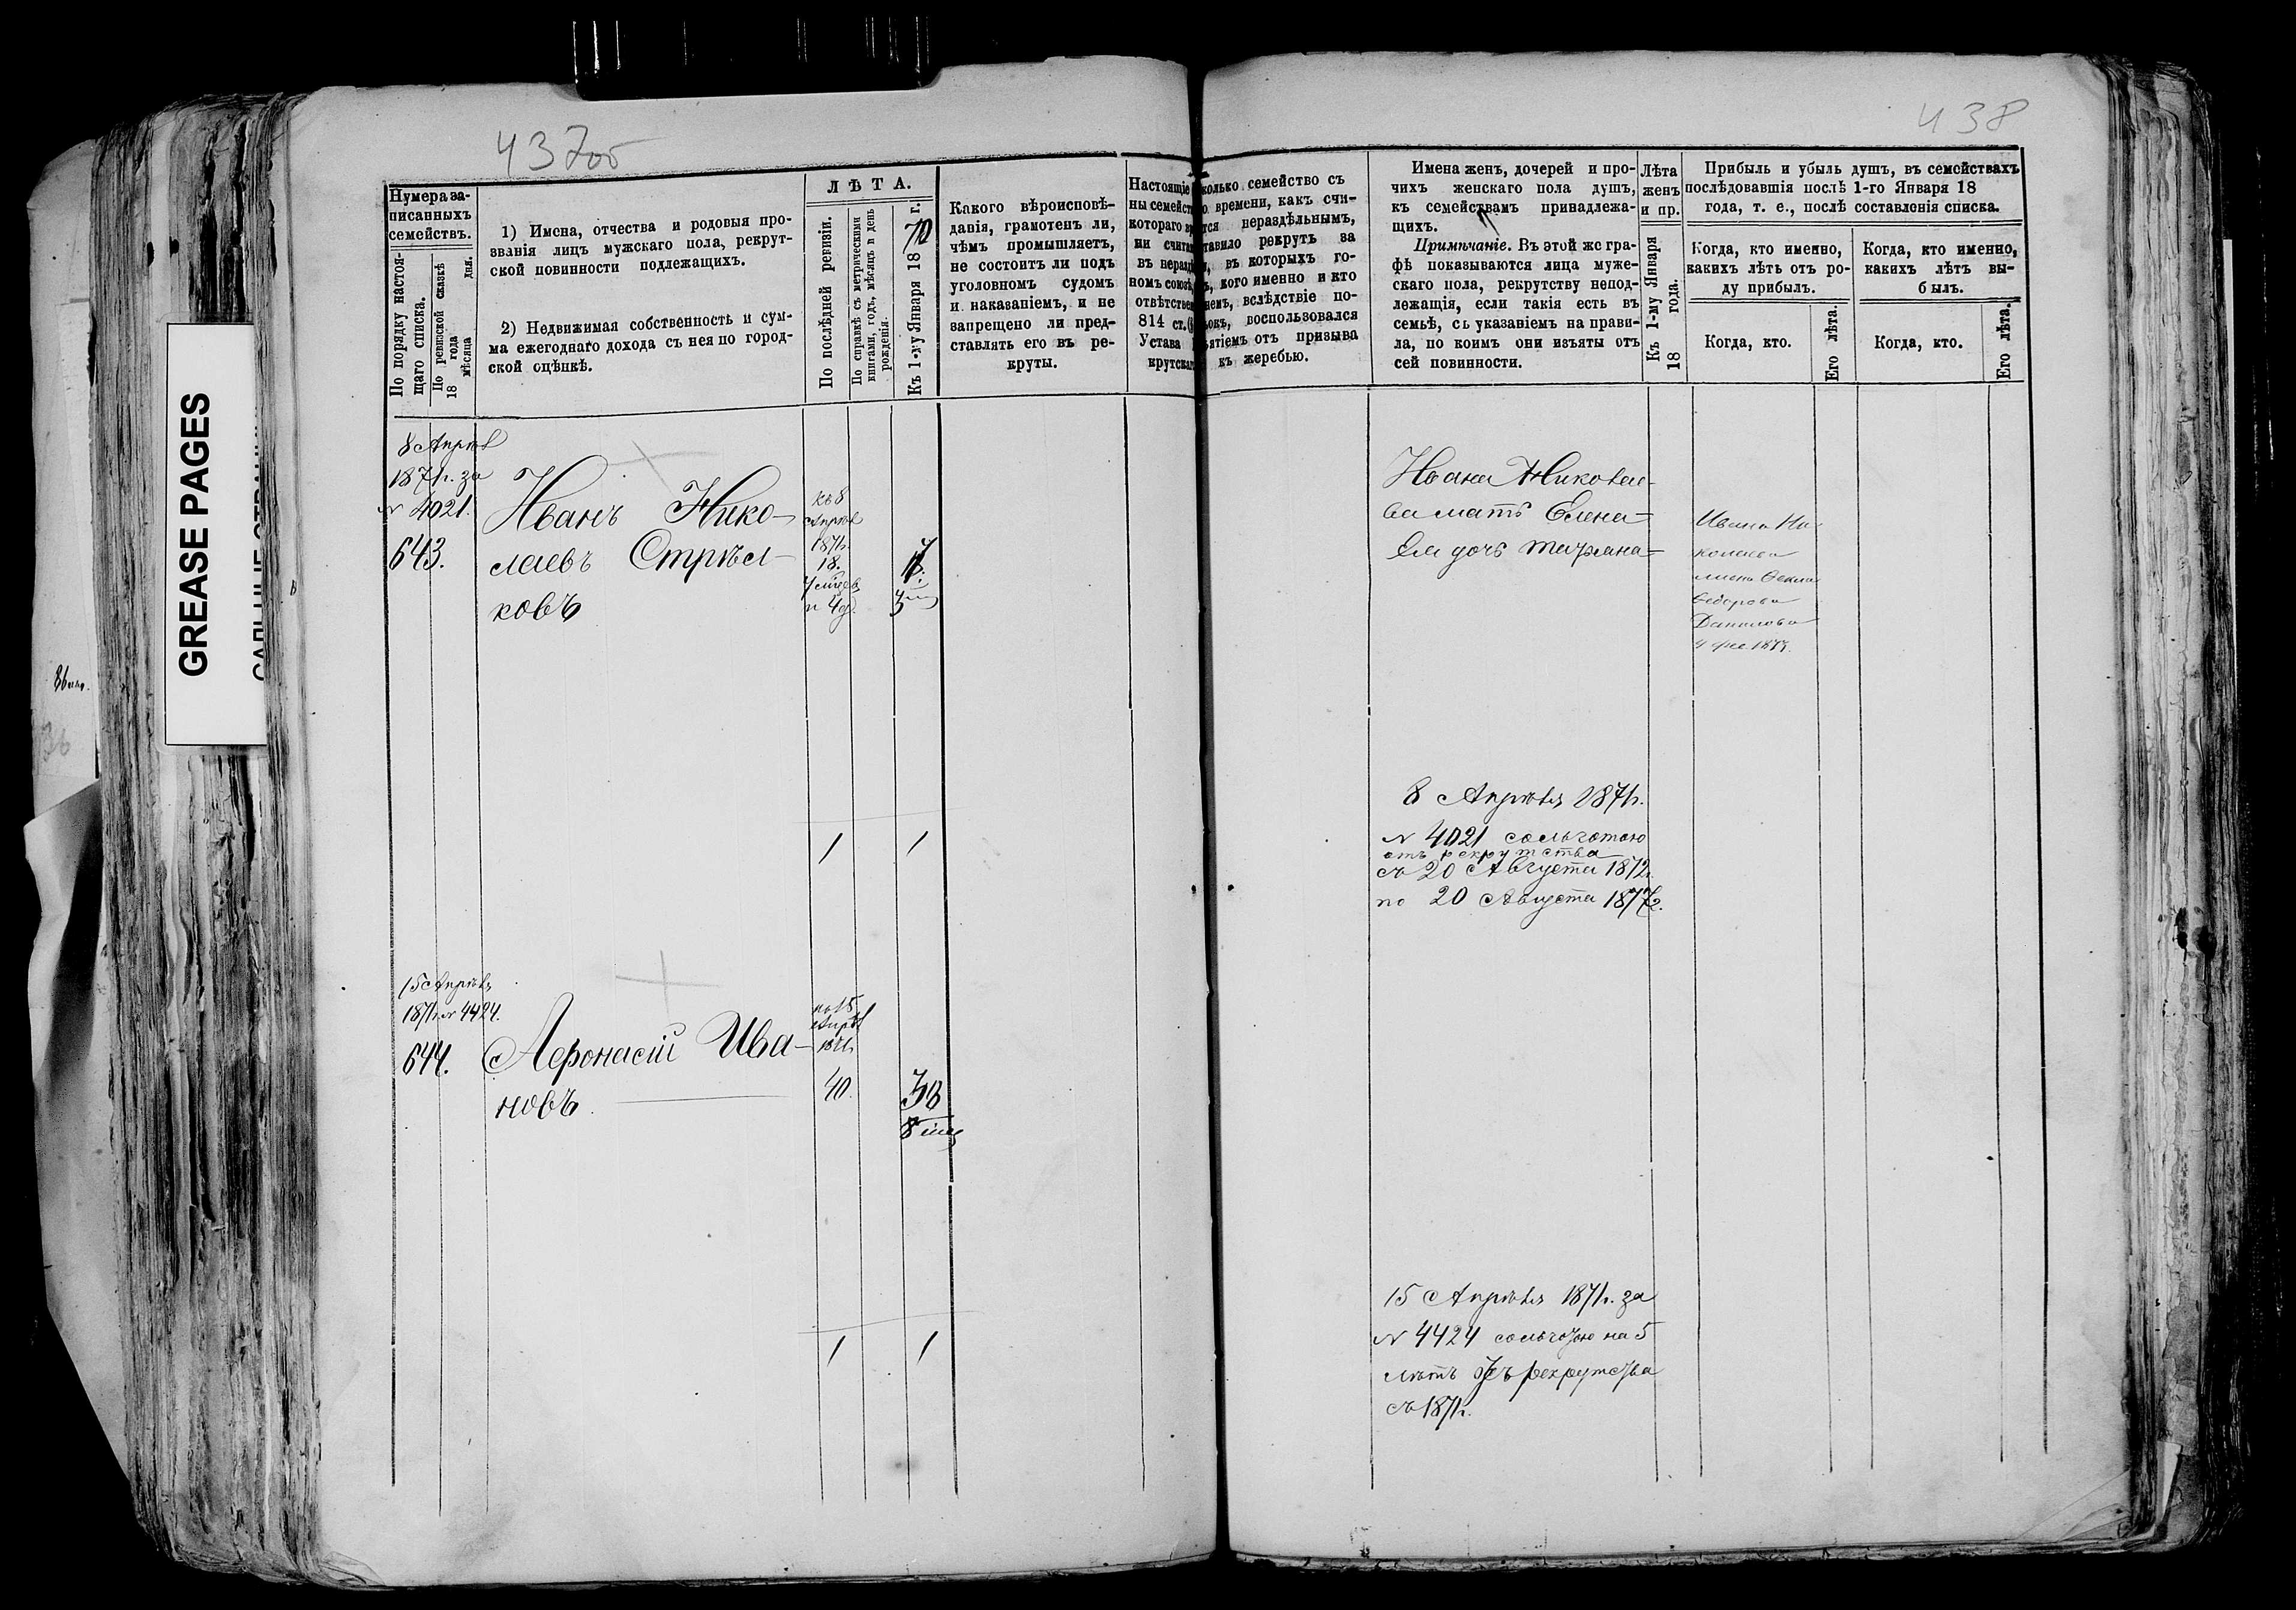 437об
438
GREASE PAGES
Нумера за-
писанныхъ
семействъ.
По порядку настоя-
щаго списка.
По ревизской сказкѣ
18 года
мѣсяца дня.
1) Имена, отчества и родовыя про-
званія лицъ мужскаго пола, рекрут-
ской повинности подлежащихъ.
2) Недвижимая собственность и сум-
ма ежегоднаго дохода съ нея по город-
ской оцѣнкѣ.
ЛѢТА.
По послѣдней ревизіи.
По справкѣ съ метрическими
книгами, годъ, мѣсяцъ и день
рожденія.
Къ 1-му Января 1870 г.
Какого вѣроисповѣ-
данія, грамотенъ ли,
чѣмъ промышляетъ,
не состоитъ ли подъ
уголовномъ судомъ
и наказаніемъ, и не
запрещено ли пред-
ставлять его въ ре-
круты.
Настоящіе
ны семейст
котораго вр
ни счита
въ неразд
номъ союзѣ,
отвѣтстве
814 ст.
Устава
крутска
колько семейство съ
о времени, какъ счи-
тся нераздѣльнымъ,
тавило рекрутъ за
, въ которыхъ го-
ъ, кого именно и кто
немъ, вслѣдствіе по-
окъ, воспользовался
ятіемъ отъ призыва
къ жеребью.
Имена женъ, дочерей и про-
чихъ женскаго пола душъ,
къ семействамъ принадлежа-
щихъ.
Примѣчаніе. Въ этой же гра-
фѣ показываются лица муже-
скаго пола, рекрутству непод-
лежащія, если такія есть въ
семьѣ, съ указаніемъ на прави-
ла, по коимъ они изъяты отъ
сей повинности.
Лѣта
женъ
и пр.
Къ 1-му Января
18 года.
Прибыль и убыль душъ, въ семействахъ
послѣдовавшія послѣ 1-го Января 18
года, т. е., послѣ составленія списка.
Когда, кто именно,
какихъ лѣтъ отъ ро-
ду прибылъ.
Когда, кто.
Его лѣта.
Когда, кто именно,
какихъ лѣтъ вы-
былъ.
Когда, кто.
Его лѣта.
8 Апрѣл
1871г. за
№ 4021.
643.
Иванъ Нико-
лаевъ Стрѣл-
ковъ
къ 8
Апрѣл
1871г.
18.
и 4д.
Ивана Николае-
ва мать Елена
Ея дочь Татьяна
Ивана Ни
колаева
жена Фекла
Федорова
Данилова
1 1
8 Апрѣля 1871г.
№ 4021 сольготою
отъ рекрутства
съ 20 Августа 1872г.
по 20 Августа 1877г.
15 Апрѣля
1871г. № 4424.
644.
Афонасій Ива-
новъ.
къ 15
Апрѣл
1871г.
40.
38
8 мѣс
1 1
15 Апрѣля 1871г. за
№ 4424 сольготою на 5
лѣтъ отъ рекрутства
съ 1871г.